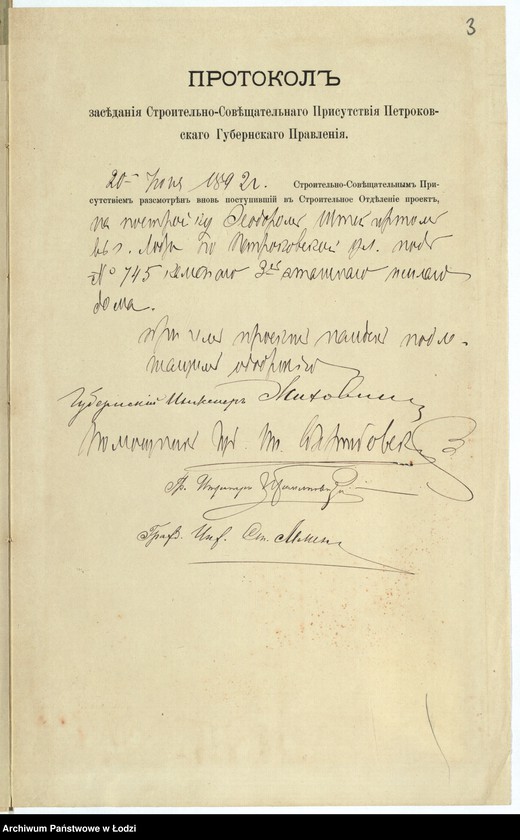 3
ПРОТОКОЛЪ
засѣданія Строительно-Совѣщательнаго Присутствія Петроков-
скаго Губернскаго Правленія.
20 Іюня 1892 г. Строительно-Совѣщательнымъ При-
сутствіемъ разсмотрѣнъ вновь поступившій въ Строительное Отдѣленіе проектъ,
на постройку Теодоромъ
въ г. Лодзи по Петроковской ул. подъ
№ 745 3хъ этажнаго жилаго
дома.
При чемъ проектъ подле-
жащимъ одобренію
Губернскій Инженеръ
Помощникъ
Гр. Инженеръ
Гражд. Инж. Ст.
Archiwum Państwowe w Łodzi